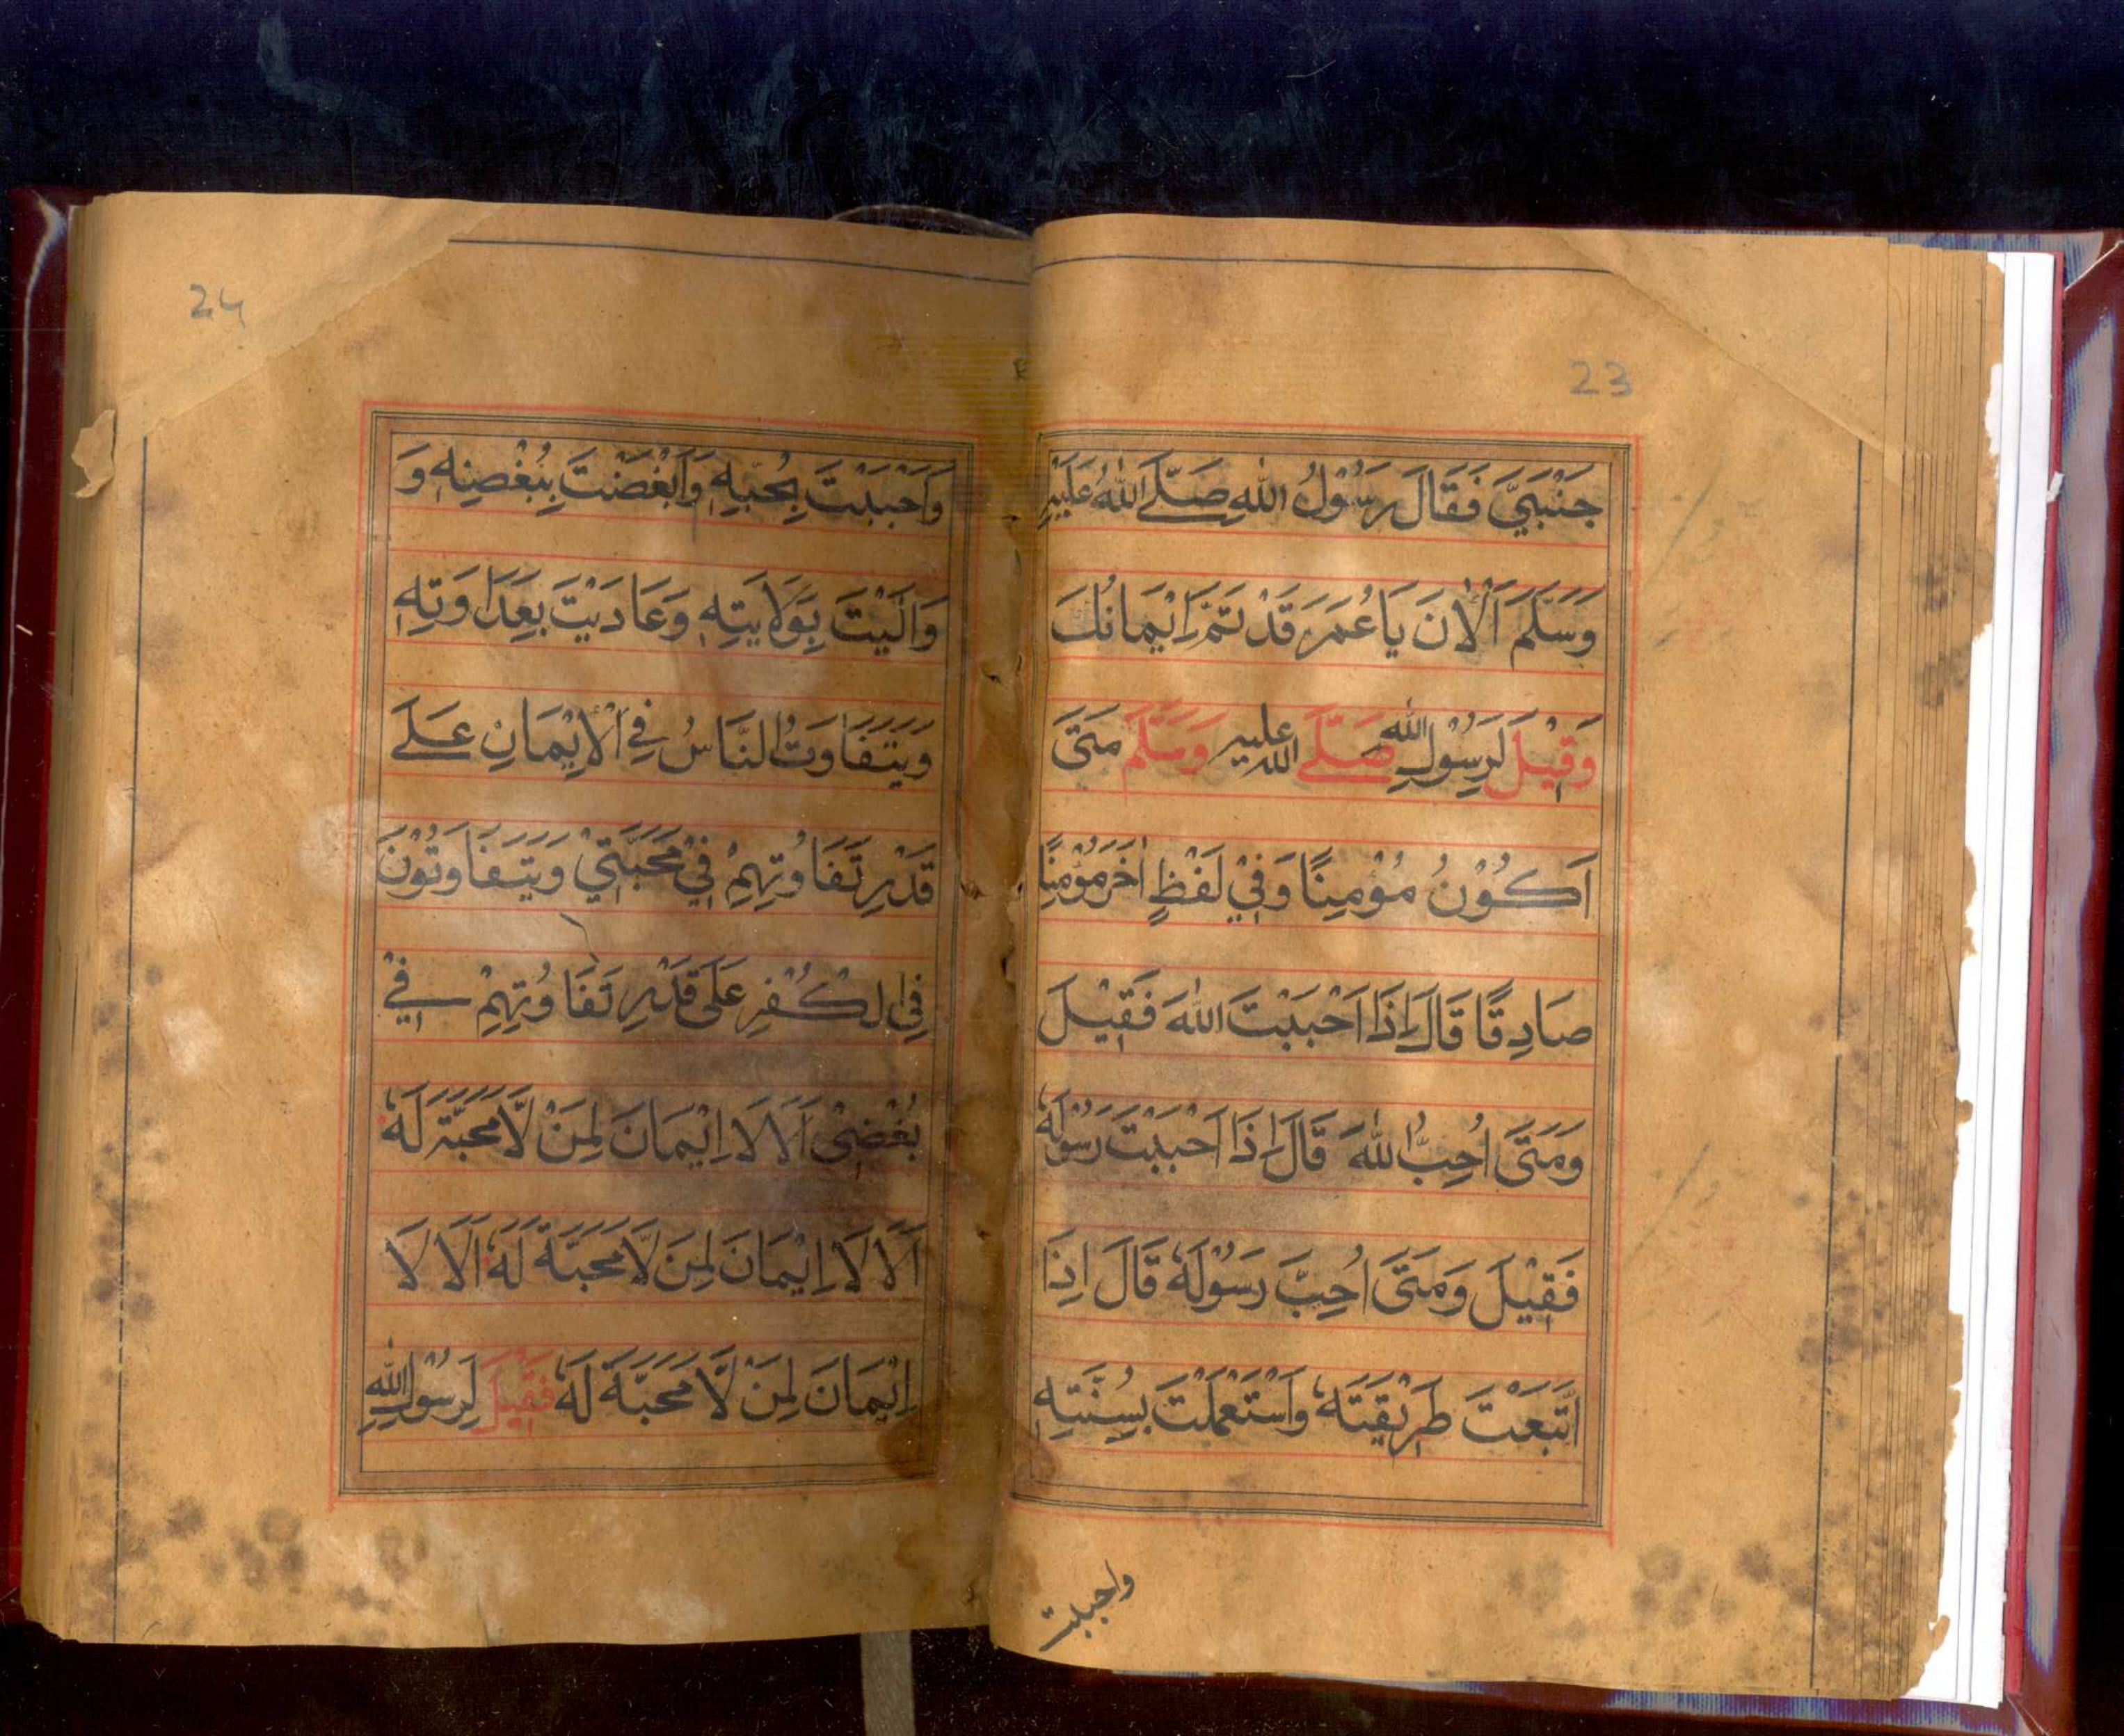 23
جَنْبَيَّ فَقَالَ رَسُوْلُ اللهِ صَلَّے اللهُ عَلَيْهِ
وَسَلَّمَ اَلْاٰنَ يَا عُمَرُ قَدْ تَمَّ اِيْمَانُكَ
وَقِيْلَ لِرَسُوْلِ اللهِ صَلَّے الله عليه وَسَلَّمَ مَتَى
اَكُوْنُ مُؤْمِنًا وَفِيْ لَفْظٍ اٰخَرَ مُؤْمِنًا
صَادِقًا قَالَ اِذَا اَحْبَبْتَ اللهَ فَقِيْلَ
وَمَتَى اُحِبُّ اللهَ قَالَ اِذَا اَحْبَبْتَ رَسُوْلَهٗ
فَقِيْلَ وَمَتَى اُحِبُّ رَسُوْلَهٗ قَالَ اِذَا
اتَّبَعْتَ طَرِيْقَتَهٗ وَاسْتَعْمَلْتَ بِسُنَّتِهٖ
واحببت
24
وَاَحْبَبْتَ بِحُبِّهٖ وَاَبْغَضْتَ بِبُغْضِهٖ وَ
وَالَيْتَ بِوَلَايَتِهٖ وَعَادَيْتَ بِعَدَاوَتِهٖ
وَيَتَفَاوَتُ النَّاسُ فِے الْاِيْمَانِ عَلَے
قَدْرِ تَفَاوُتِهِمْ فِيْ مَحَبَّتِيْ وَيَتَفَاوَتُوْنَ
فِي الْكُفْرِ عَلَى قَدْرِ تَفَاوُتِهِمْ فِےْ
بُغْضِيْ اَلَا لَا اِيْمَانَ لِمَنْ لَّا مَحَبَّةَ لَهٗ
اَلَا لَا اِيْمَانَ لِمَنْ لَّا مَحَبَّةَ لَهٗ اَلَا لَا
اِيْمَانَ لِمَنْ لَّا مَحَبَّةَ لَهٗ فَقِيْلَ لِرَسُوْلِ اللهِ